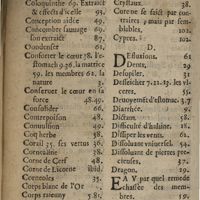 Coloquinthe 69. Extraict
& effects d'icelle 79.
Conception aidée 49.
Concombre sauuage
son extraict 87.
Condenser 61.
Conforter le cœur 38. l'e-
stomach 9.36. la matrice
59. les membres 62. la
nature
Conseruer le cœur en la
force 48.49.
Consolider 66.
Contrepoison 48.
Conuulsion 49.
Coq herbe 58.
Corail 35. ses vertus 36.
Cornealine 38.
Corne de Cerf 48.
Corne de Licorne ibid.
Corneoles 35.
Corps blanc de l'Or
Corps raieuny 7.85.
Crystaux. 38.
Cure ne se faict par con-
traires, mais par sem-
blables, 102.
Cypres. 102.
D.
Defluxions. 61
Dents, 29
Desopiler. 31
Desseicher 7.12.37. les vl-
ceres. 55.
Deuoyemét d'estomac. 3.7
Diarrhée. 62
Dictam. 58.
Difficulté d'haleine. 18.
Dissiper les vents. 61.
Dissoluant vniuersel. 54.
Dissoluant de pierres pre-
cieuses. 37.
Dragon. 29.
EAV par quel remede
chassée des mem-
bres. 19.